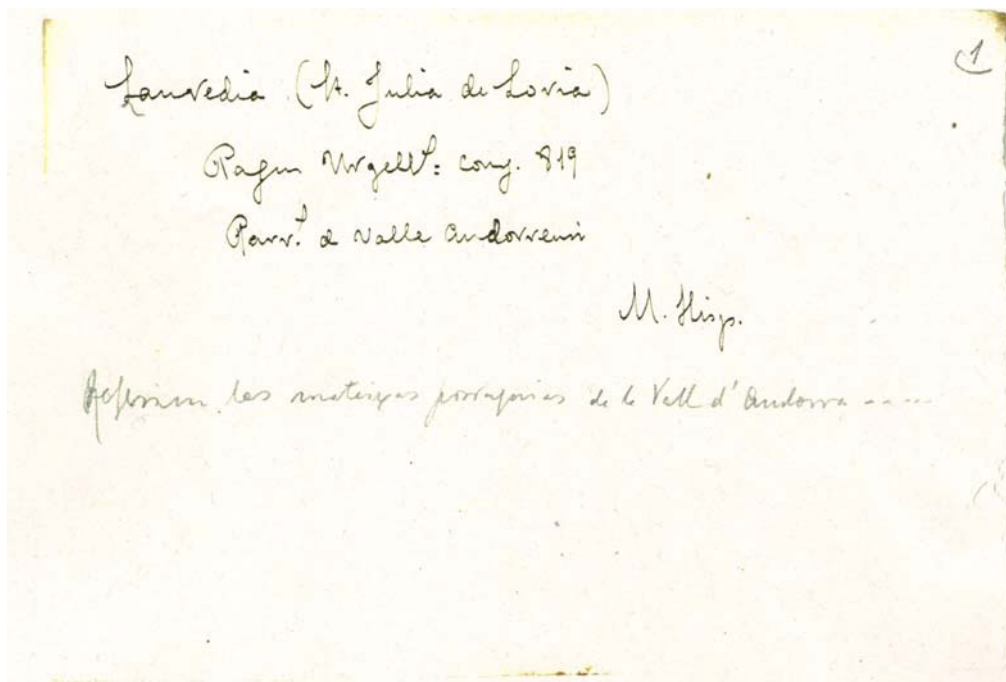 1
Lauredia (St. Julia de Loria)
Pagus Urgell^t: cong. 819
Parr.^l a Valle Andorrensi
M. Hisp.
les mateixas parroquias de la Vall d'Andorra -----